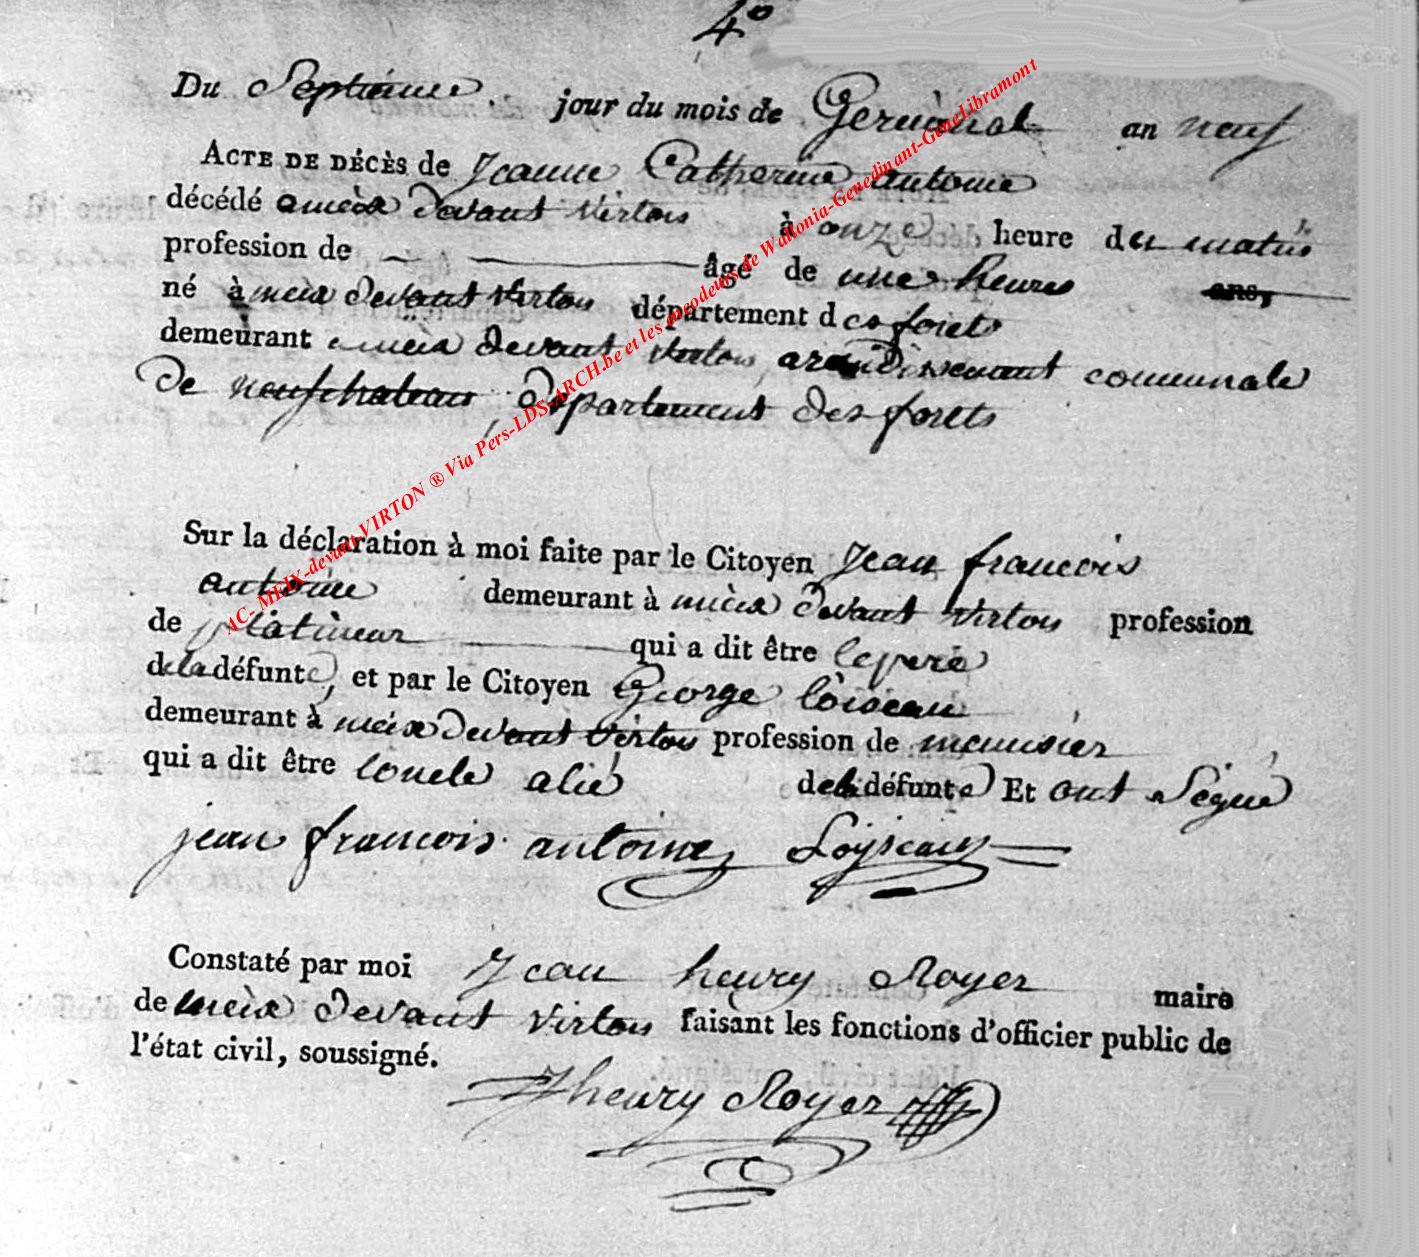 4°
Du Septieme jour du mois de Germinal an neuf
ACTE DE DÉCÈS de Jeanne Catherine antoine
décédé a meix devant virton à onze heure du matin
profession de — âgé de une heure ans,
né à meix devant virton département des forets
demeurant a meix devant virton, arondissement communale
de neufchateau, département des forets
Sur la déclaration à moi faite par le Citoyen Jean francois
antoine demeurant à meix devant virton profession
de platineur qui a dit être le pere
de la défunte, et par le Citoyen George loiseau
demeurant à meix devant virton profession de menusier
qui a dit être loncle alié de la défunte Et ont Signé
jean francois antoine Loyseau
Constaté par moi Jean henry Royer maire
de meix devant virton faisant les fonctions d'officier public de
l'état civil, soussigné.
Jhenry Royer
AC- MEIX-devant-VIRTON ® Via Pers-LDS-ARCH.be et les encodeurs de Wallonia-Genedinant-GeneLibramont